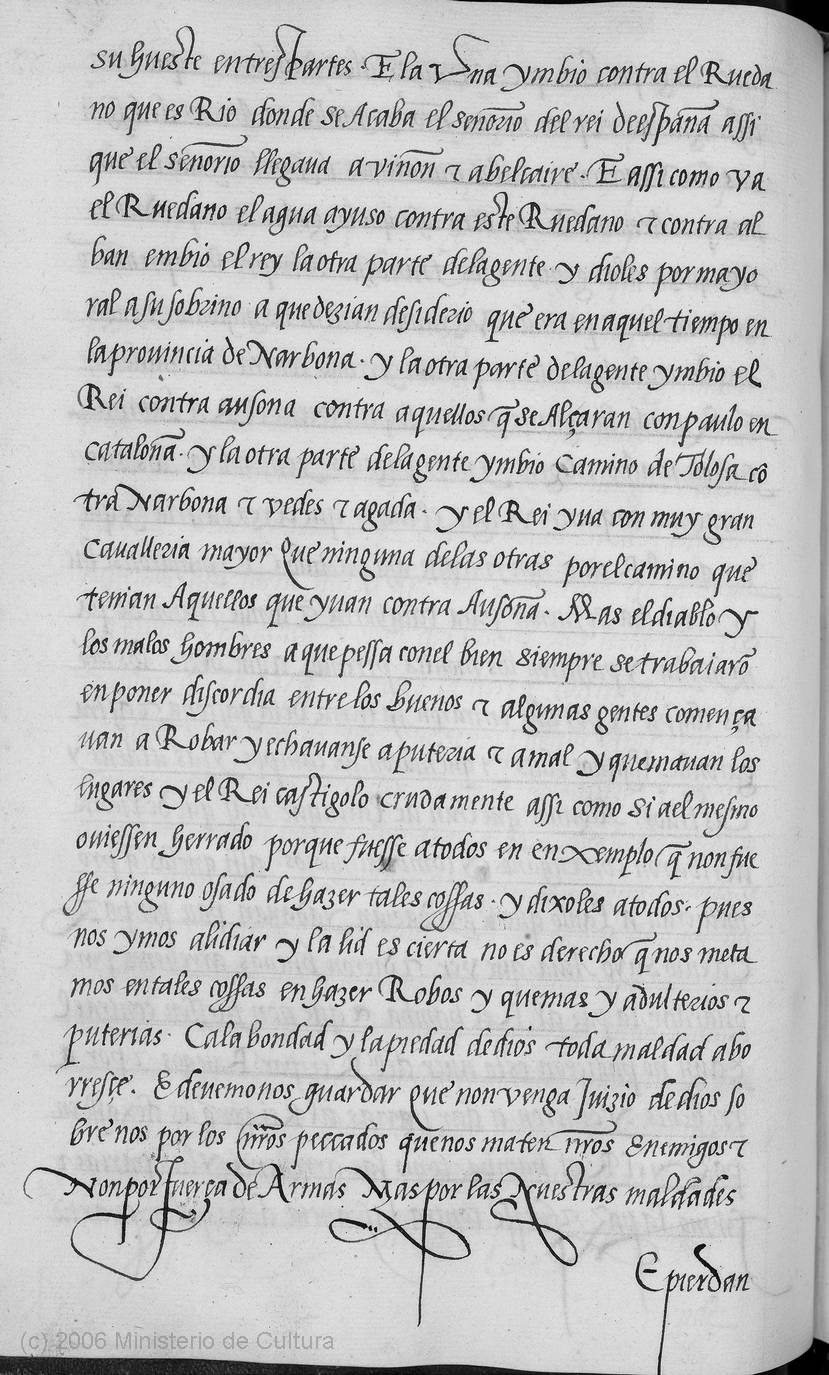 su hueste entres partes · E la Vna ymbio contra el Rueda
no que es Rio donde se Acaba el señorio del rei de españa assi
que el señorio llegaua a viñon τ a belcaire · E assi como va
el Ruedano el agua ayuso contra este Ruedano τ contra al
ban embio el rey la otra parte delagente y dioles por mayo
ral a su sobrino a que dezian desiderio que era en aquel tiempo en
la prouincia de Narbona · y la otra parte delagente ymbio el
Rei contra ausona contra aquellos q̃ se Alçaran con paulo en
cataloña · y la otra parte delagente ymbio Camino de Tolosa cõ
tra Narbona τ vedes τ agada · y el Rei yua con muy gran
Caualleria mayor Que ninguna delas otras por el camino que
tenian Aquellos que yuan contra Ausoña · Mas el diablo y
los malos hombres a que pessa con el bien siempre se trabaiarõ
en poner discordia entre los buenos τ algunas gentes comença
uan a Robar y echauanse a puteria τ a mal y quemauan los
lugares y el Rei castigolo crudamente assi como si a el mesmo
ouiessen herrado porque fuesse a todos en enxemplo q̃ non fue
sse ninguno osado de hazer tales cossas · y dixoles a todos · pues
nos ymos alidiar y la lid es cierta no es derecho q̃ nos meta
mos en tales cossas en hazer Robos y quemas y adulterios τ
puterias · Cala bondad y la piedad de dios toda maldad abo
rresçe. E deuemonos guardar Que non venga Juizio de dios so
bre nos por los nr̃os peccados que nos maten nr̃os Enemigos τ
Non por fuerça de Armas Mas por las Nuestras maldades
E pierdan
(c) 2006 Ministerio de Cultura